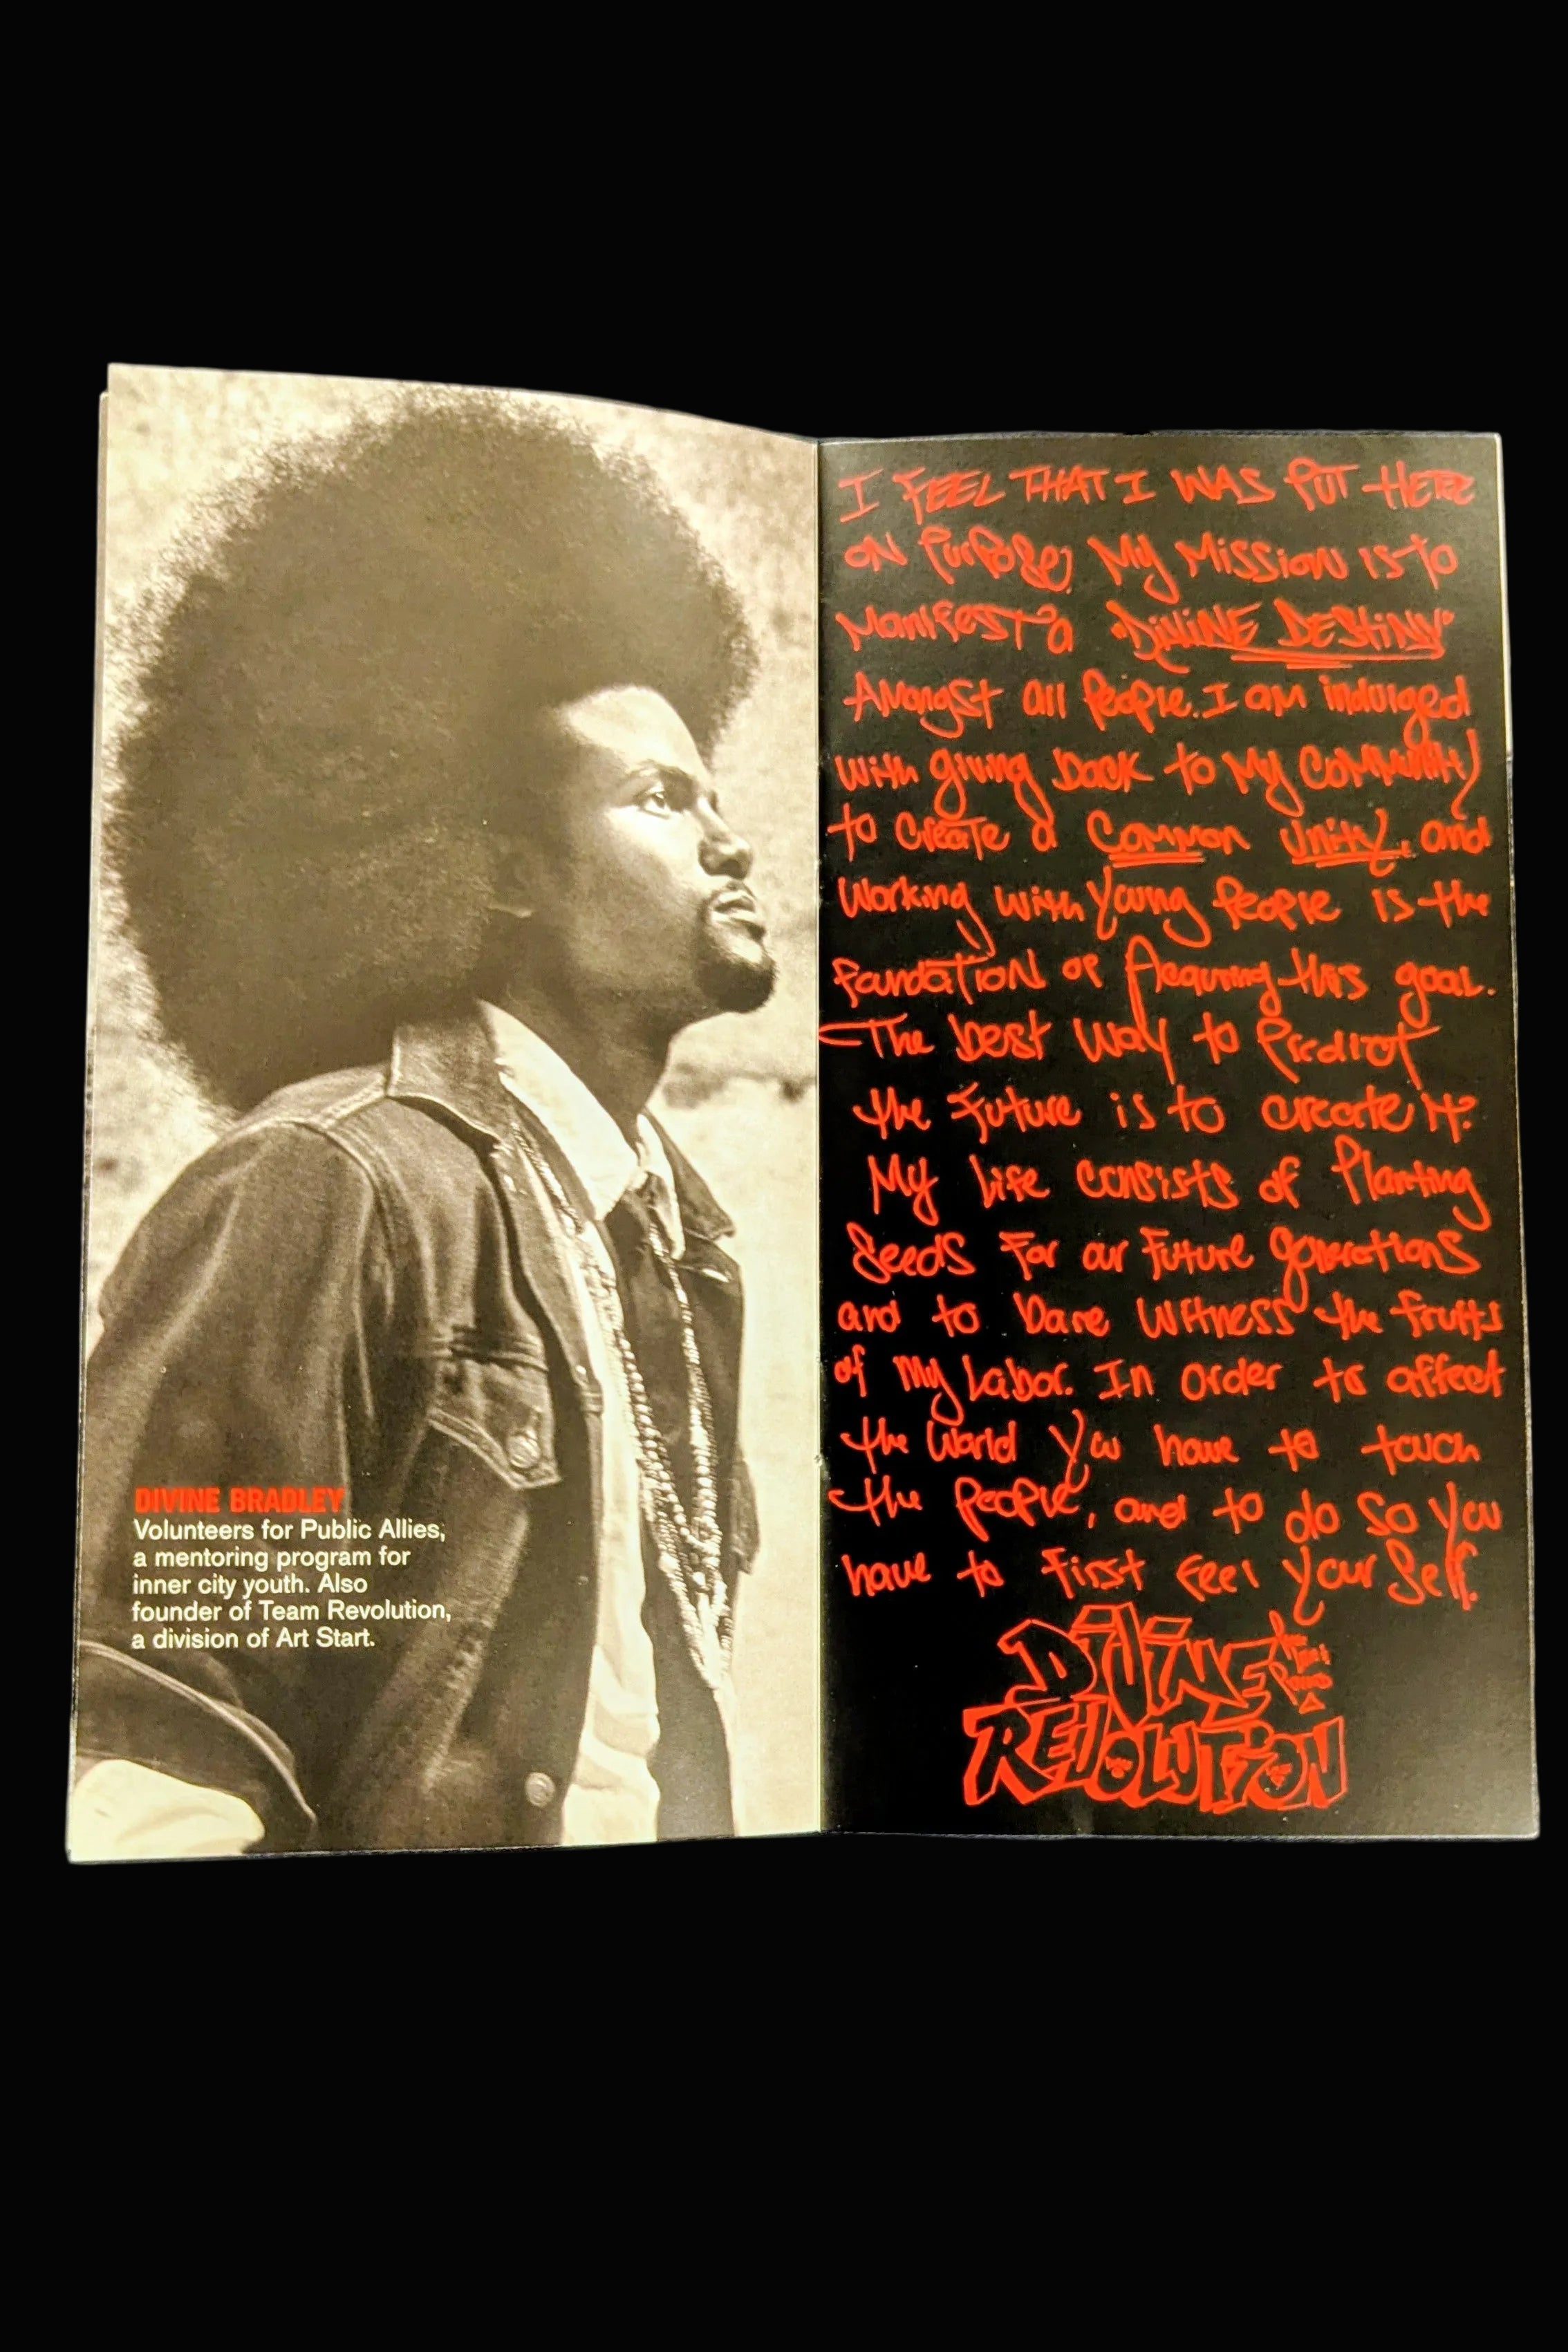 DIVINE BRADLEY
Volunteers for Public Allies,
a mentoring program for
inner city youth. Also
founder of Team Revolution,
a division of Art Start.
I FEEL THAT I WAS PUT HERE
ON PURPOSE, My Mission is to
Manifest a "DIVINE DESTINY"
Amongst all People. I am indulged
with giving back to My Community
to create a Common Unity, and
Working with Young People is the
foundation of Acquiring this goal.
The best way to Predict
the Future is to create it.
My life consists of Planting
Seeds For our Future generations
and to bare Witness the fruits
of My Labor. In order to affect
the World You have to touch
the People, and to do so You
have to First Feel Your Self.
DIVINE
REVOLUTION